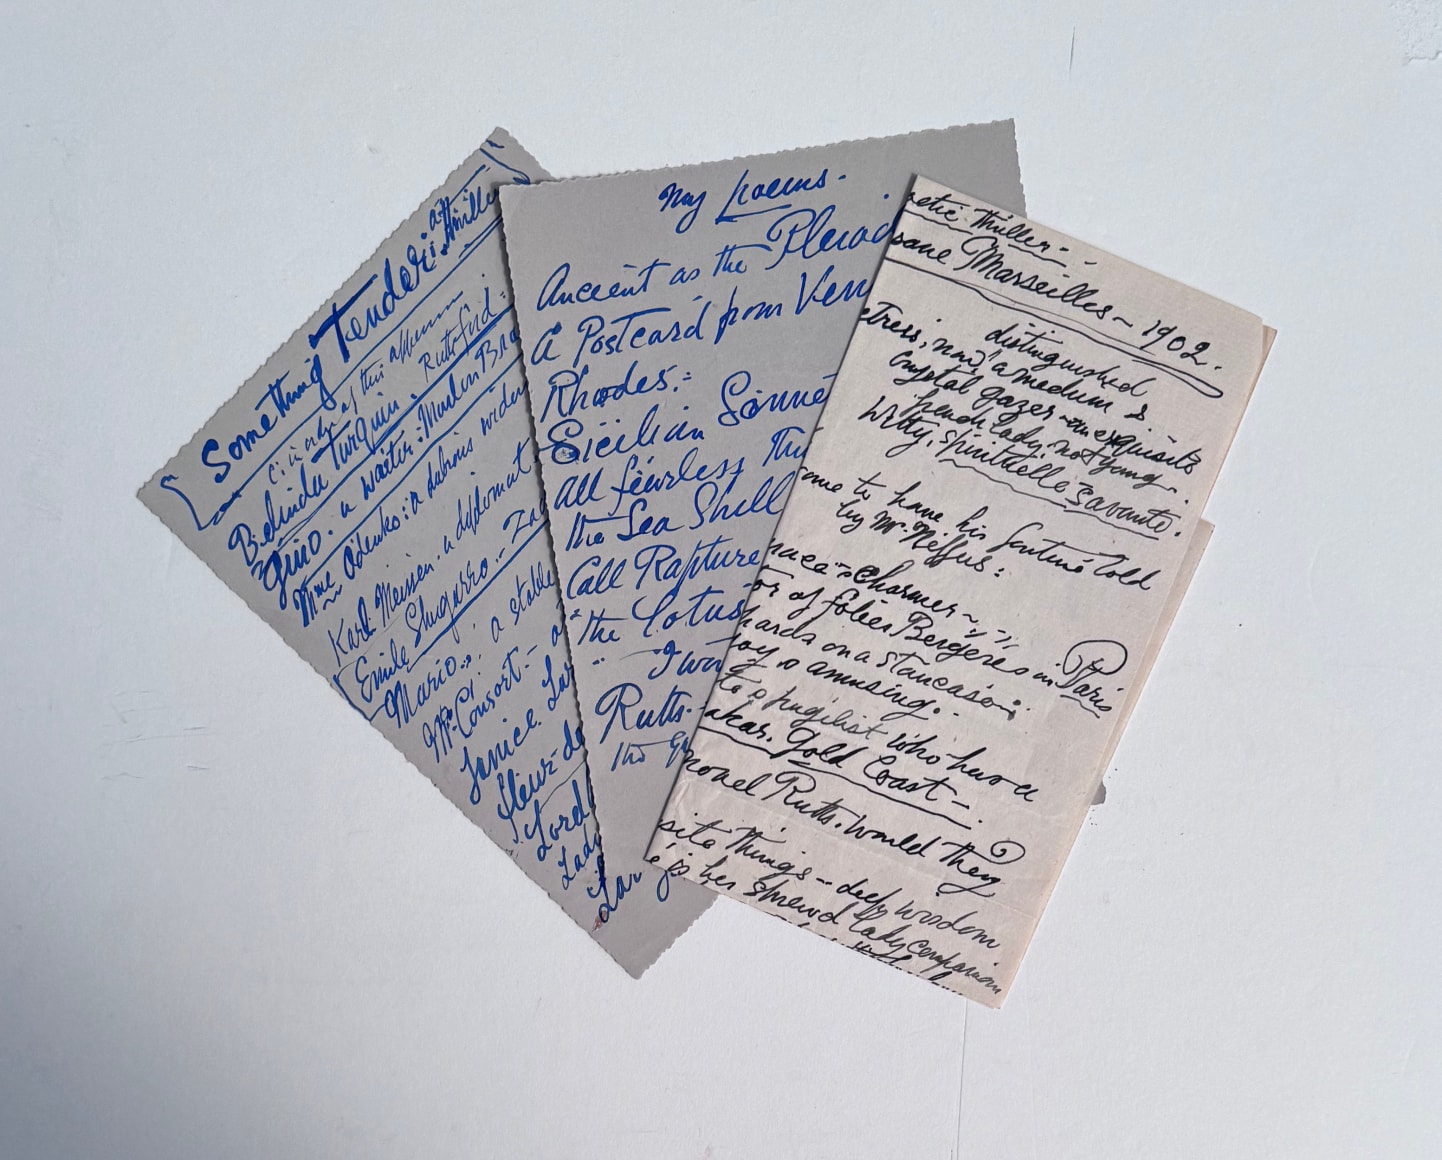 Something Tender: a thriller
Rutherford:
Belinda Turquin.
Gino. a waiter: Marlon Bra
Mme Odenko: a dubious widow
Karl Meissen. a diplomat
Emile Shugarro. Za
Mario: a stable
Mr. Consort - a
Janice. Lar
fleur de
Lord
Lady
Lar
My poems.
Ancient as the Pleiad
A Postcard from Ven
Rhodes:
Sicilian Sonnet
All fearless Thi
The Sea Shell
Call Rapture
"The Lotus
" - I wan
Rutts.
The
etic Thriller -
sane Marseilles - 1902.
distinguished
ctress, now a medium &
crystal gazer - an exquisite
french lady, not young.
Witty, spirituelle savante.
ome to have his fortune told
by Mr. Neffus:
Charmer -
or of folies Bergeres in Paris
hards on a staircase:
oy is amusing.
to a pugilist who has a
akar. Gold Coast -
onel Rutts. Would they
site Things - deep wisdom
e is her shrewd lady companion